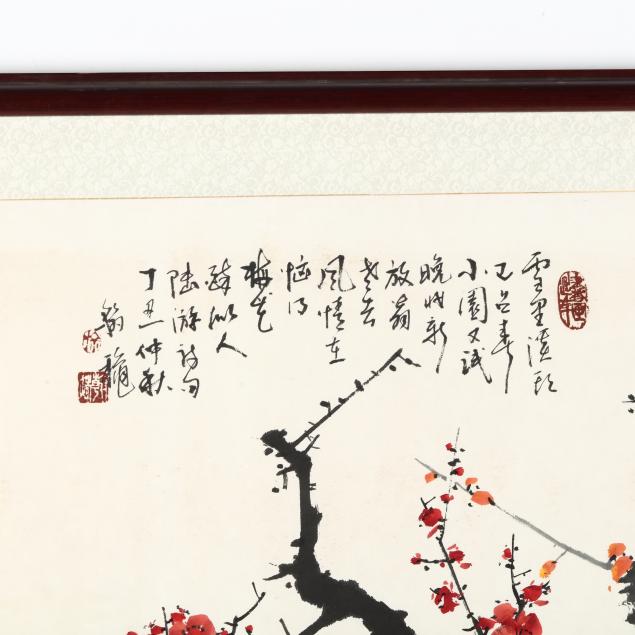 雪里溪头
已占春
小園又試
晚妝新
放翁
老去
風情在
恼得
梅花
醉似人
陸游詩句
丁丑仲秋